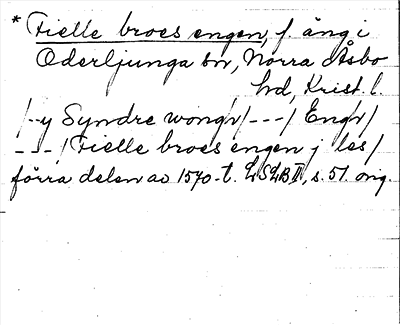 * Fielle broes engen, f. äng i
Oderljunga sn, Norra Åsbo
hd, Krist. l.
/--y Syndre wongr/---/ Engr/
---/ Fielle broes engen j les/
förra delen av 1570-t. LSLB II, s. 51. orig.